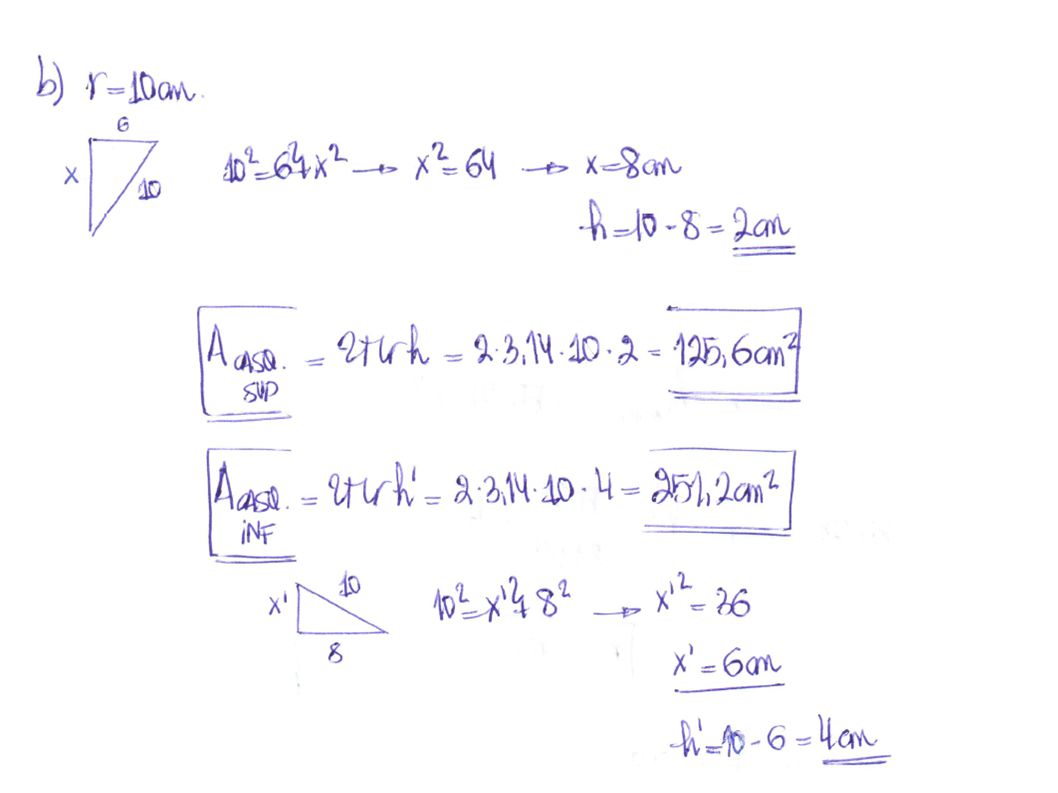 b) r=10cm.
6
x
10
10²=6²+x² → x²=64 → x=8cm
h=10-8=2cm
A CASQ. SUP = 2πrh = 2·3,14·10·2 = 125,6cm²
A CASQ. INF = 2πrh' = 2·3,14·10·4 = 251,2cm²
x'
10
8
10²=x'²+8² → x'²=36
x'=6cm
h'=10-6=4cm